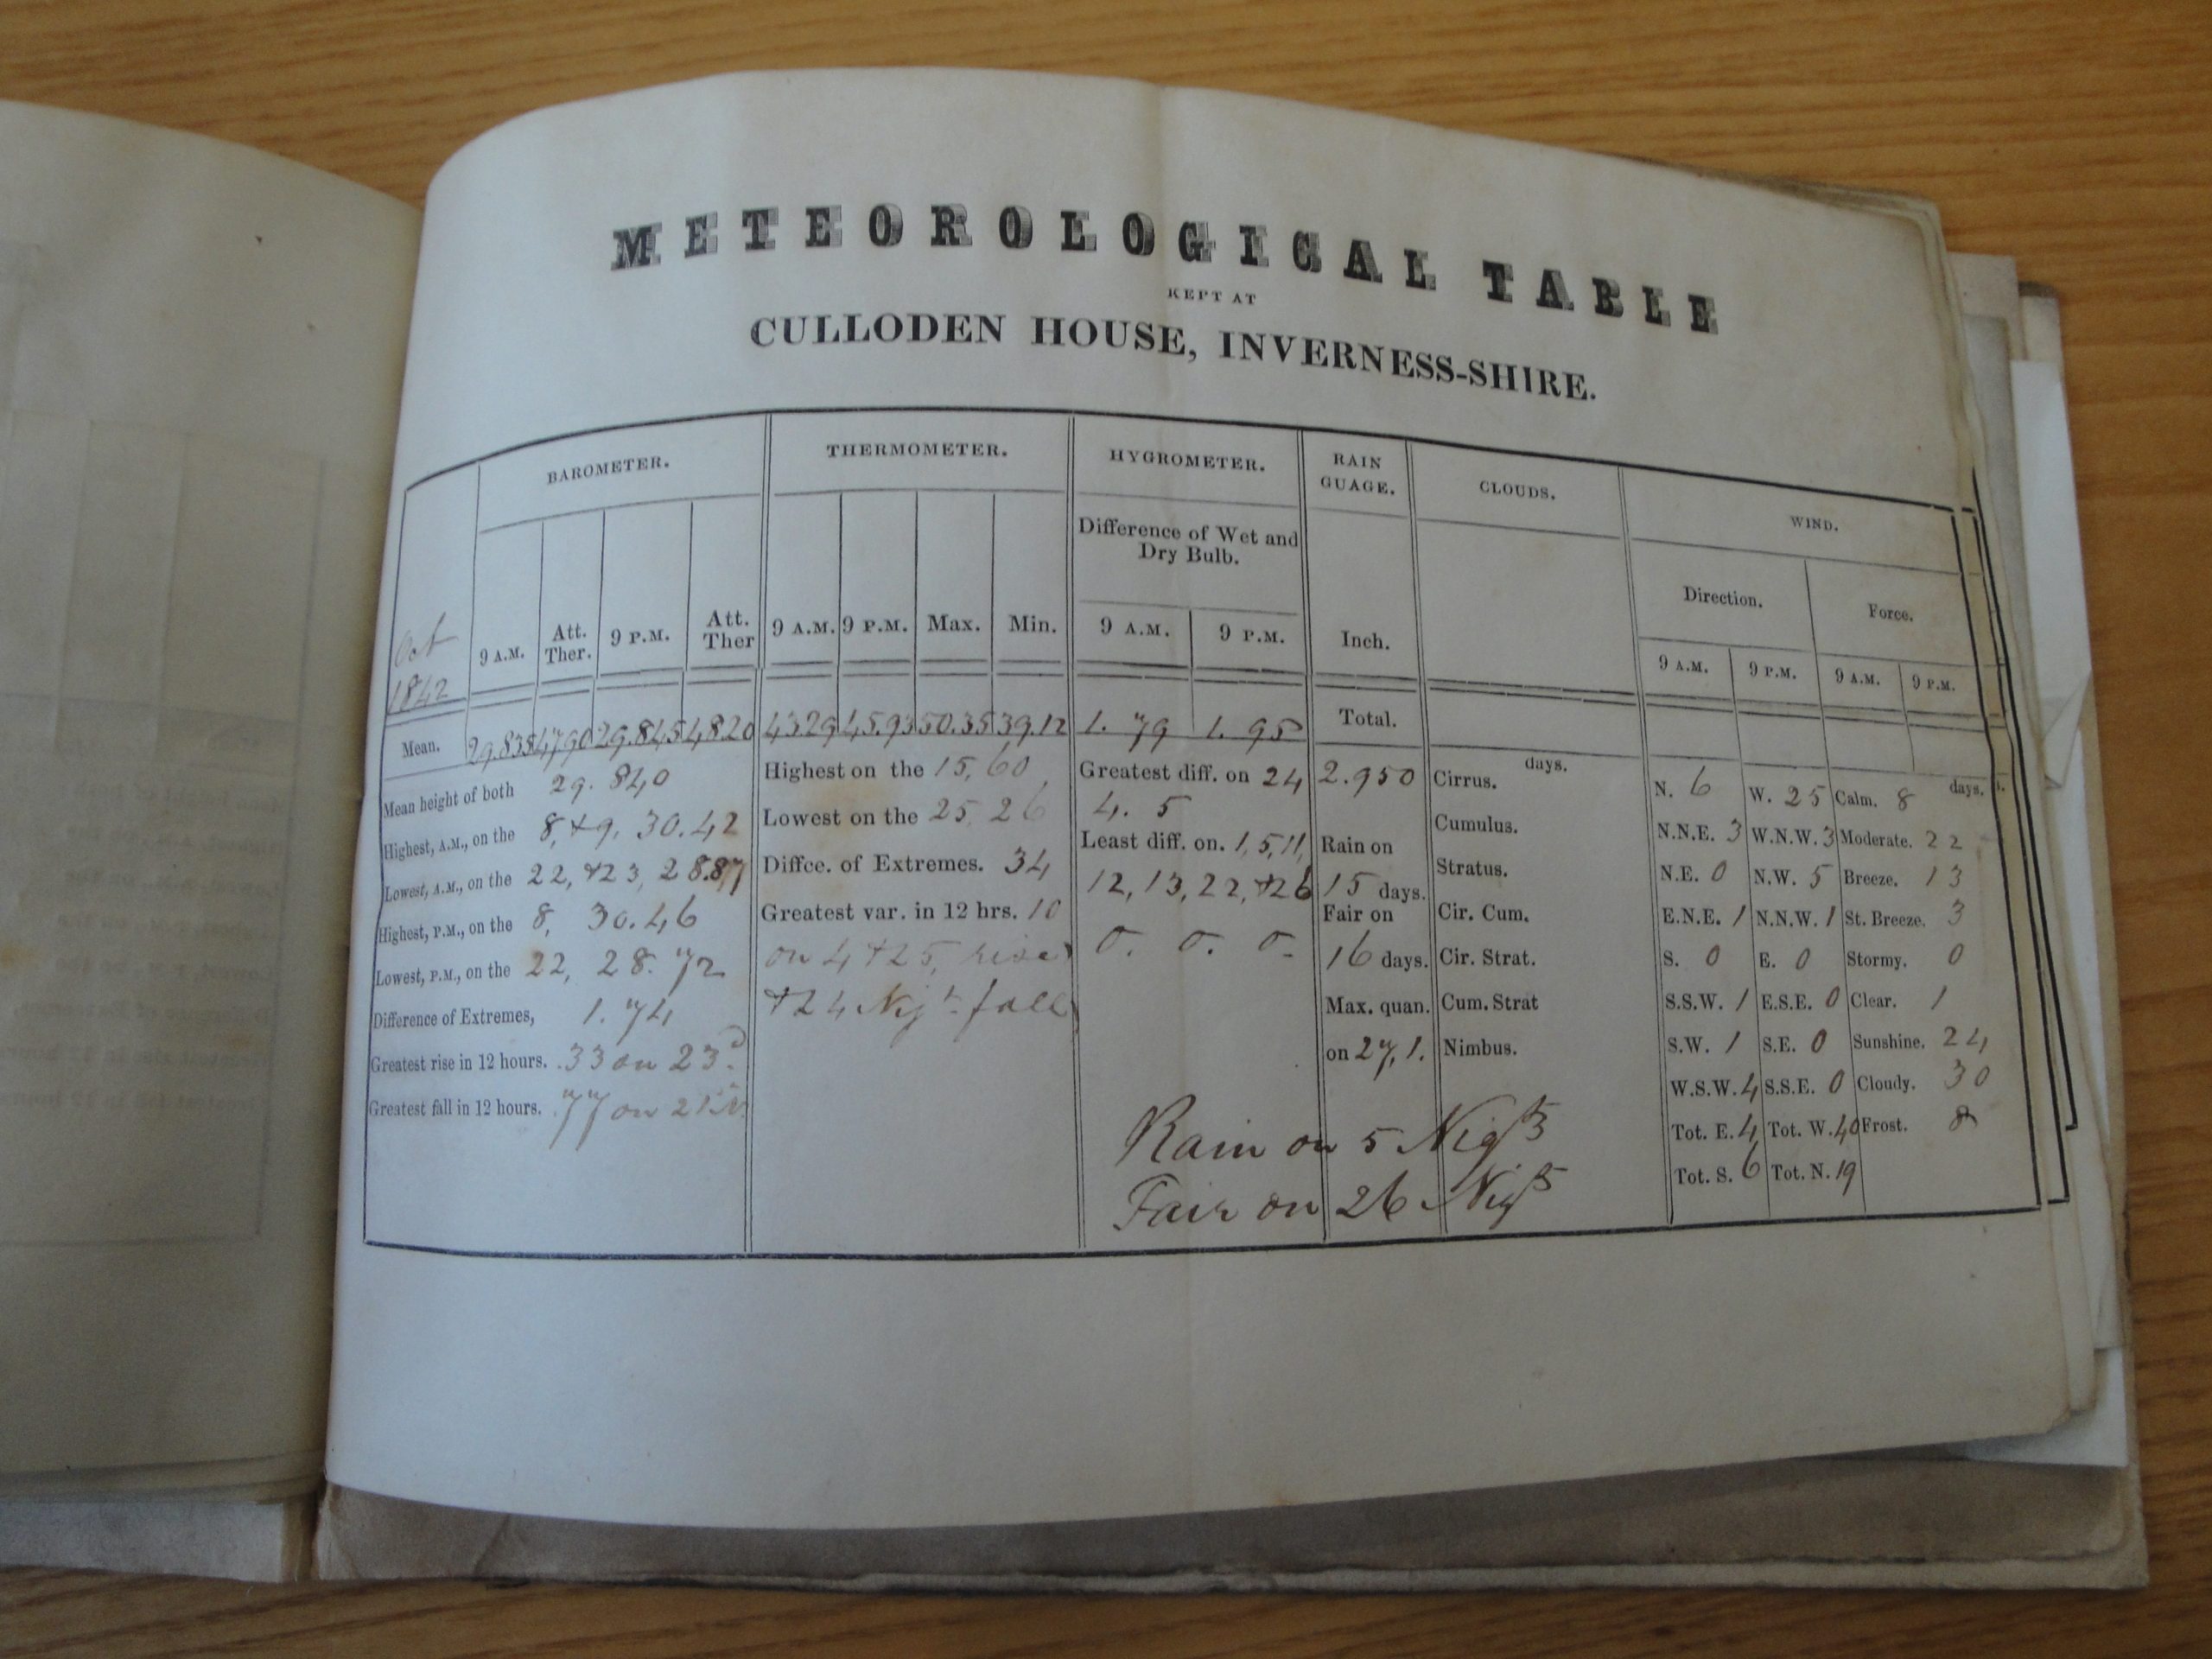 METEOROLOGICAL TABLE
KEPT AT
CULLODEN HOUSE, INVERNESS-SHIRE.
BAROMETER. THERMOMETER. HYGROMETER. RAIN GUAGE. CLOUDS. WIND.
Difference of Wet and Dry Bulb.
Direction. Force.
Oct 1842
9 A.M. Att. Ther. 9 P.M. Att. Ther 9 A.M. 9 P.M. Max. Min. 9 A.M. 9 P.M. Inch. 9 A.M. 9 P.M. 9 A.M. 9 P.M.
Mean. 29.835 4790 29.845 4820 43.29 45.93 50.35 39.12 1.79 1.95 Total.
Mean height of both 29.840
Highest, A.M., on the 8, +9, 30.42
Lowest, A.M., on the 22, +23, 28.87
Highest, P.M., on the 8, 30.46
Lowest, P.M., on the 22, 28.72
Difference of Extremes, 1.74
Greatest rise in 12 hours. .33 on 23d.
Greatest fall in 12 hours. .77 on
Highest on the 15, 60
Lowest on the 25, 26
Diffce. of Extremes. 34
Greatest var. in 12 hrs. 10
on 4 +25, rise
+24 Nigt. fall
Greatest diff. on 24
4. 5
Least diff. on. 1, 5, 11,
12, 13, 22, +26
0. 0. 0.
2.950
Rain on
15 days.
Fair on
16 days.
Max. quan.
on 27, 1.
Rain on 5 Nigts
Fair on 26 Nigts
days.
Cirrus.
Cumulus.
Stratus.
Cir. Cum.
Cir. Strat.
Cum. Strat
Nimbus.
N. 6 W. 25 Calm. 8 days.
N.N.E. 3 W.N.W. 3 Moderate. 22
N.E. 0 N.W. 5 Breeze. 13
E.N.E. 1 N.N.W. 1 St. Breeze. 3
S. 0 E. 0 Stormy. 0
S.S.W. 1 E.S.E. 0 Clear. 1
S.W. 1 S.E. 0 Sunshine. 24
W.S.W. 4 S.S.E. 0 Cloudy. 30
Tot. E. 4 Tot. W. 40 Frost. 8
Tot. S. 6 Tot. N. 19